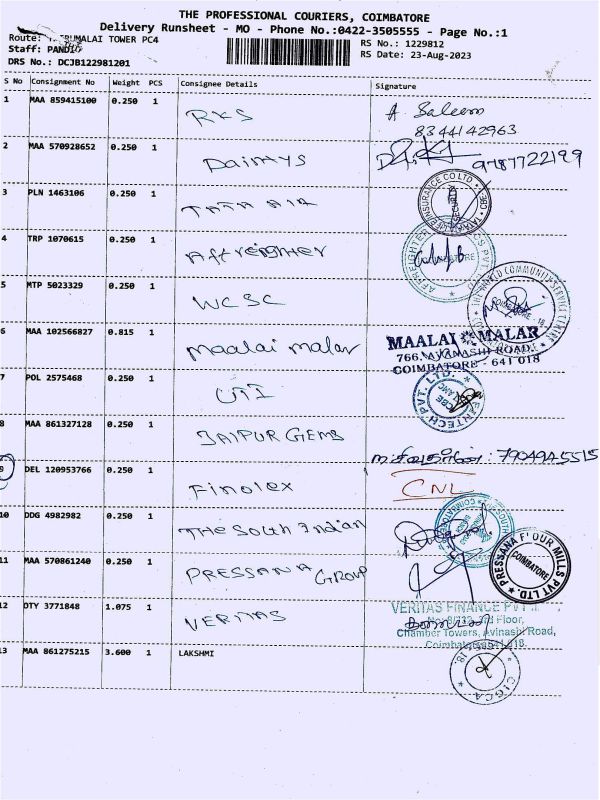 THE PROFESSIONAL COURIERS, COIMBATORE
Delivery Runsheet - MO - Phone No.:0422-3505555 - Page No.:1
Route: MALAI TOWER PC4
RS No.: 1229812
Staff: PANDI
RS Date: 23-Aug-2023
DRS No.: DCJB122981201
S No Consignment No Weight PCS Consignee Details Signature
1 MAA 859415100 0.250 1 RKS A. Saleem
8344142963
2 MAA 570928652 0.250 1 Daimys 9787722199
3 PLN 1463106 0.250 1 TATA AIA INSURANCE CO LTD
4 TRP 1070615 0.250 1 Affreighter AFFREIGHTER
5 MTP 5023329 0.250 1 WCSC THE WORLD COMMUNITY SERVICE CENTRE
COIMBATORE - 18
6 MAA 102566827 0.815 1 Maalai malar MAALAI MALAR
766, AVANASHI ROAD,
COIMBATORE - 641 018
7 POL 2575468 0.250 1 UTI
8 MAA 861327128 0.250 1 JAIPUR GEMS : 7904945515
9 DEL 120953766 0.250 1 Finolex CNL
10 DDG 4982982 0.250 1 THE South Indian
11 MAA 570861240 0.250 1 PRESSANA GROUP PRESSANA FLOUR MILLS PVT LTD.
COIMBATORE
12 OTY 3771848 1.075 1 VERITAS VERITAS FINANCE PVT
3rd Floor,
Chamber Towers, Avinasi Road,
13 MAA 861275215 3.600 1 LAKSHMI